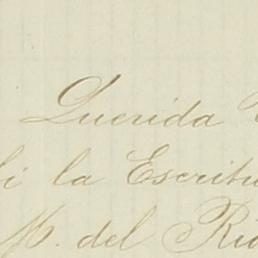 Querida
la Escritu
M. del Rio